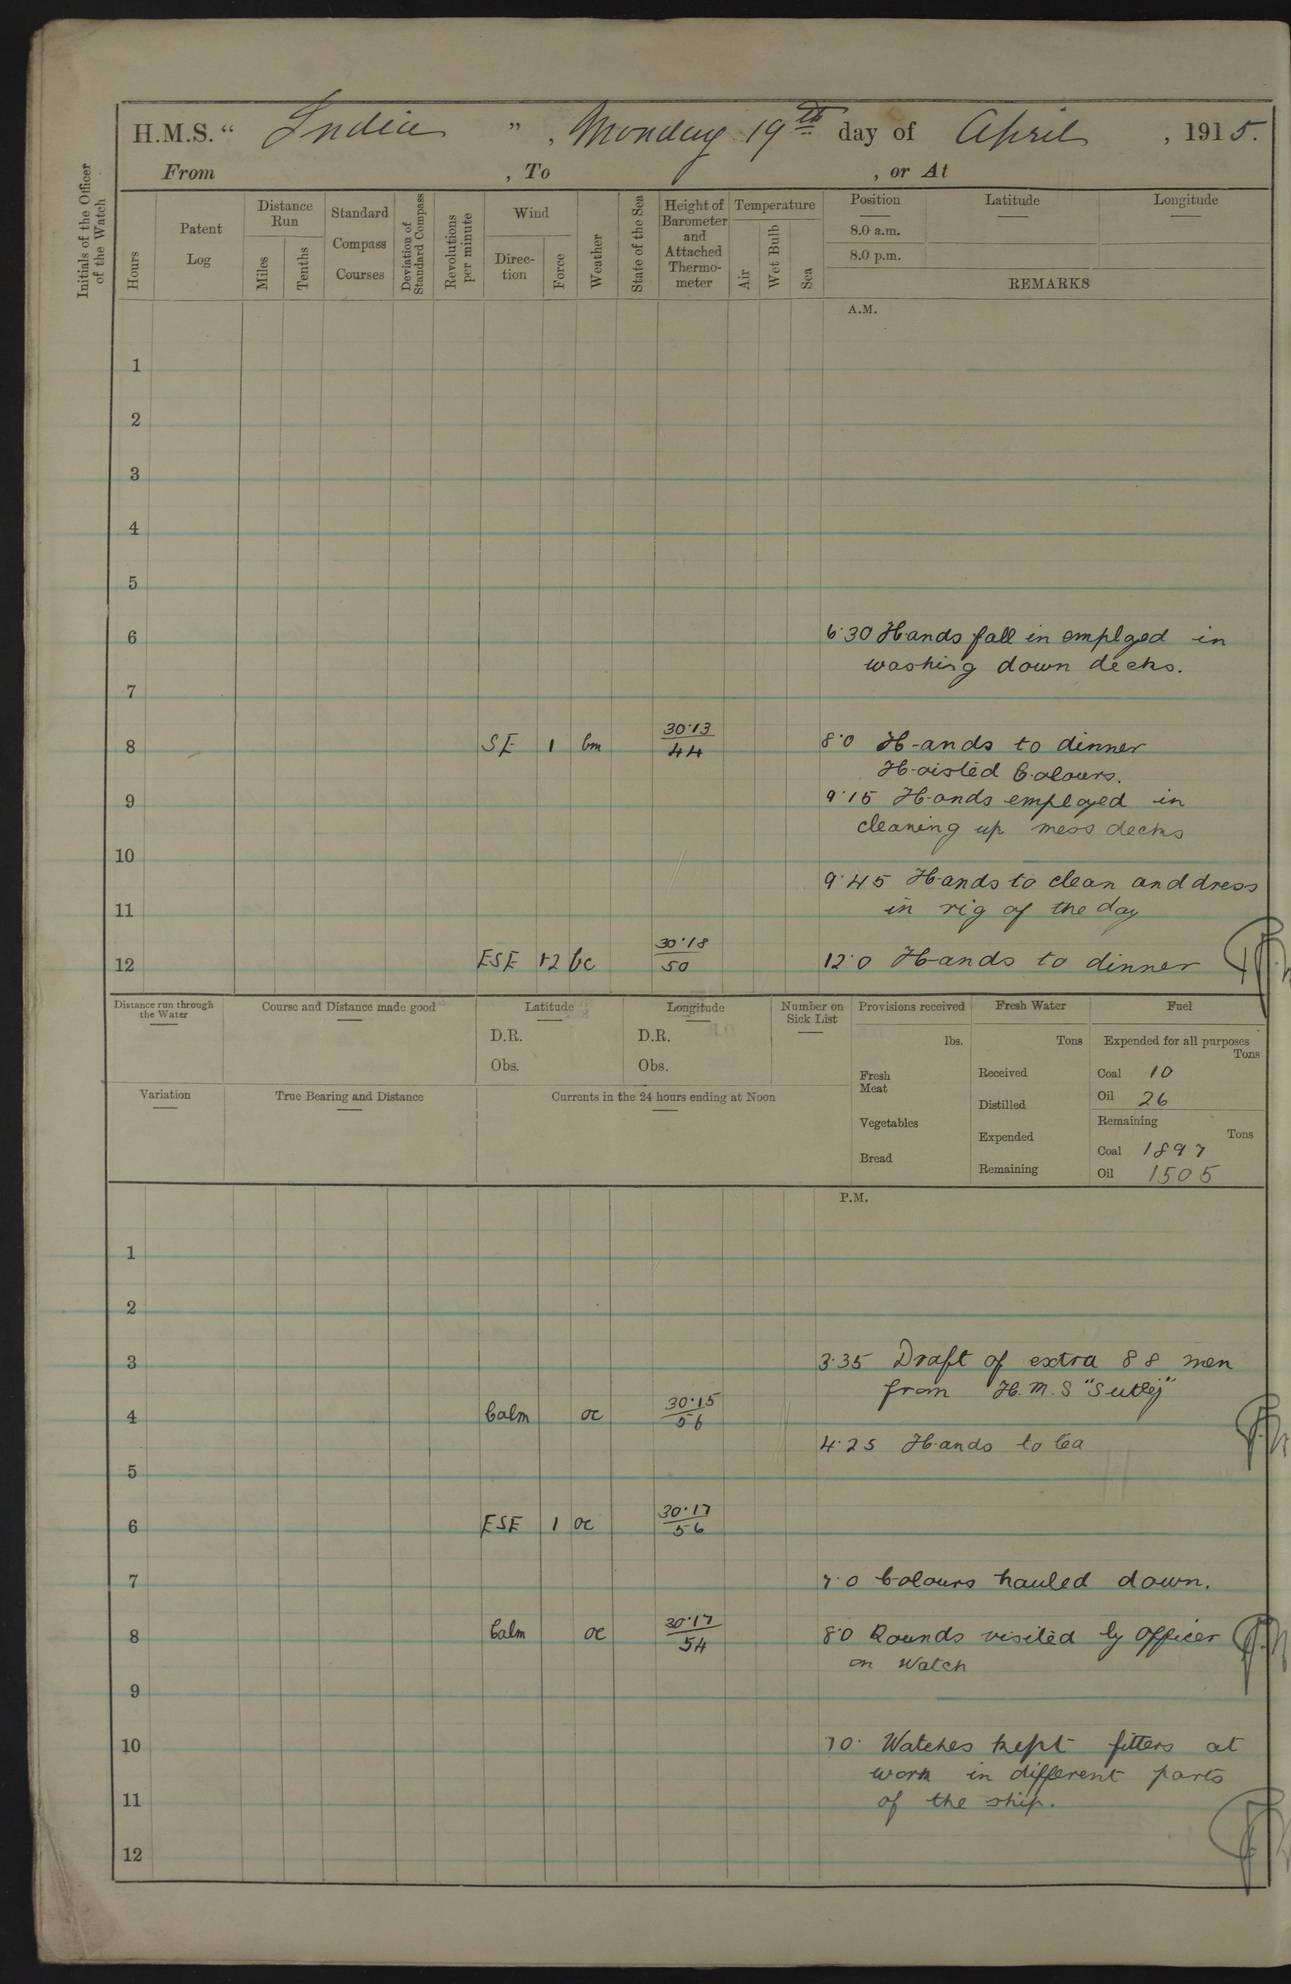 H.M.S. “ India ” , Monday 19th day of April , 1915.
From , To , or At
Initials of the Officer of the Watch
Hours
Patent Log
Distance Run
Miles
Tenths
Standard Compass Courses
Deviation of Standard Compass
Revolutions per minute
Wind
Direc-tion
Force
Weather
State of the Sea
Height of Barometer and Attached Thermo-meter
Temperature
Air
Wet Bulb
Sea
Position Latitude Longitude
8.0 a.m.
8.0 p.m.
REMARKS
A.M.
1
2
3
4
5
6
6·30 Hands fall in emplged in
washing down decks.
7
8 SE 1 bm 30·13
44
8·0 Hands to dinner
Hoisted Colours.
9
9·15 Hands employed in
cleaning up mess decks
10
9·45 Hands to clean and dress
11
in rig of the day
12 ESE 1-2 bc 30·18
50
12·0 Hands to dinner
Distance run through the Water
Course and Distance made good
Latitude
D.R.
Obs.
Longitude
D.R.
Obs.
Number on Sick List
Provisions received
lbs.
Fresh Meat
Vegetables
Bread
Fresh Water
Tons
Received
Distilled
Expended
Remaining
Fuel
Expended for all purposes
Tons
Coal 10
Oil 26
Remaining
Tons
Coal 1897
Oil 1505
Variation
True Bearing and Distance
Currents in the 24 hours ending at Noon
P.M.
1
2
3
3·35 Draft of extra 88 men
from H.M.S "Sutlej"
4 Calm oc 30·15
56
4·25 Hands to tea
5
6 ESE 1 oc 30·17
56
7
7·0 Colours hauled down.
8 Calm oc 30·17
54
8·0 Rounds visited by officer
on Watch
9
10
10· Watches kept fitters at
work in different parts
11
of the ship.
12